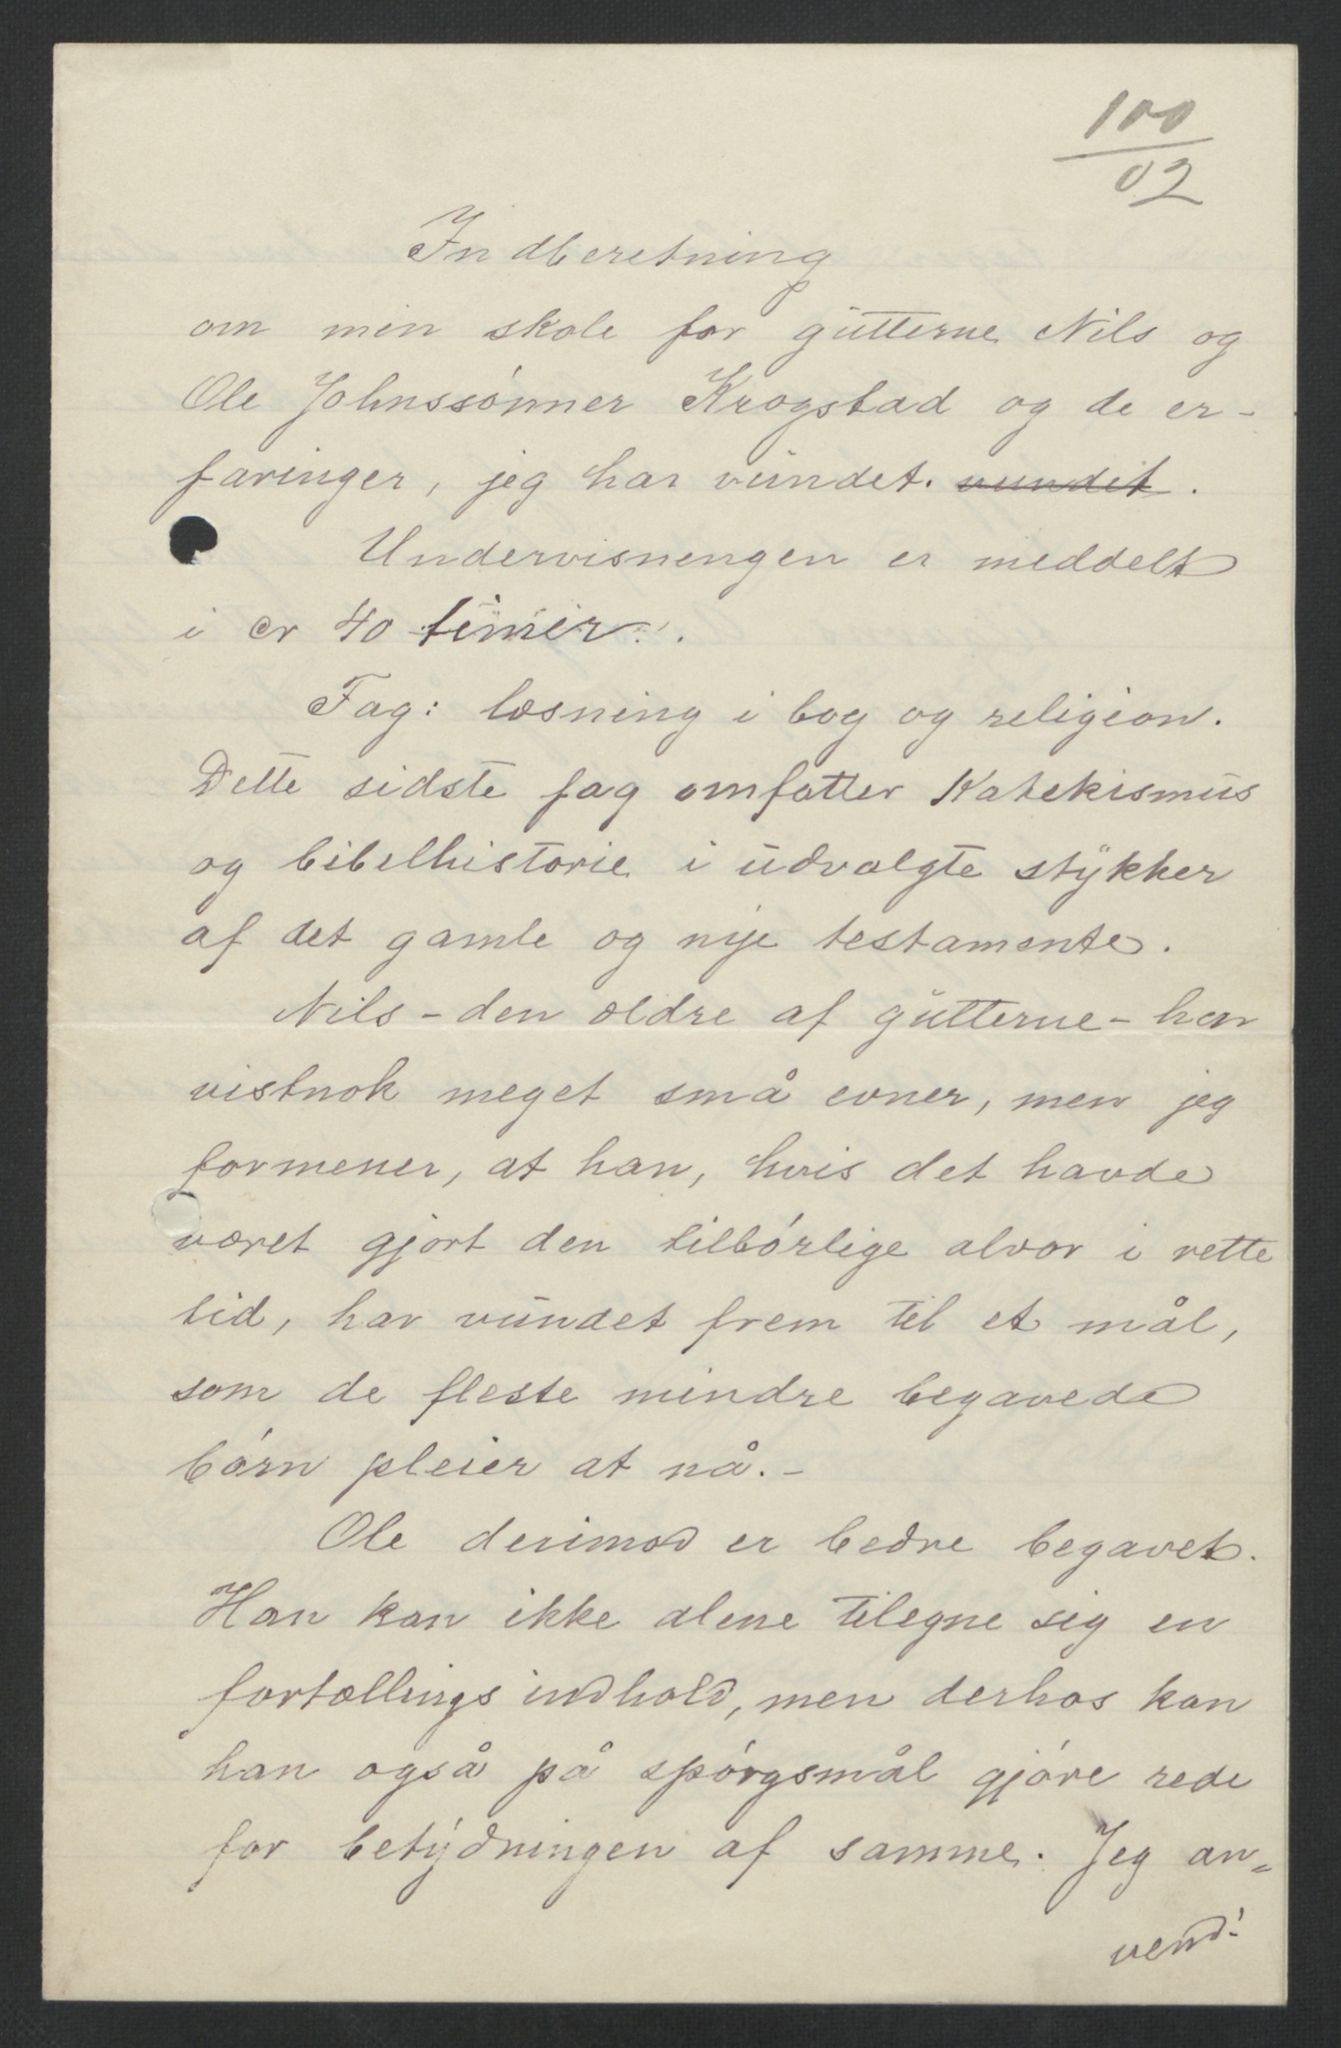 100
02
Indberetning
om min skole for gutterne Nils og
Ole Johnssønner Krogstad og de er-
faringer, jeg har vundet. vundet.
Undervisningen er meddelt
i cr 40 timer.
Fag: læsning i bog og religion.
Dette sidste fag omfatter Katekismus
og bibelhistorie i udvalgte stykker
af det gamle og nye testamente.
Nils – den ældre af gutterne – har
vistnok meget små evner, men jeg
formener, at han, hvis det havde
været gjort den tilbørlige alvor i rette
tid, har vundet frem til et mål,
som de fleste mindre begavede
børn pleier at nå. –
Ole derimod er bedre begavet.
Han kan ikke alene tilegne sig en
fortællings indhold, men derhos kan
han også på spørgsmål gjøre rede
for betydningen af samme. Jeg an-
vend!